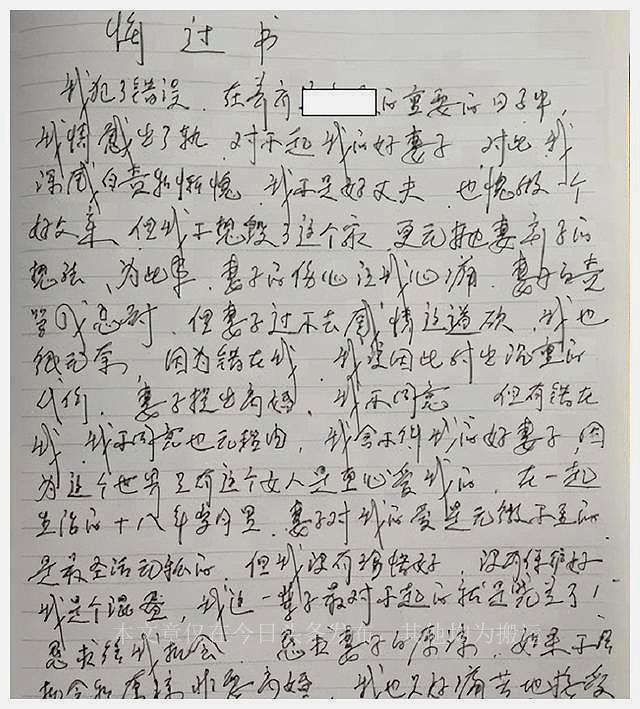 悔过书
我犯了错误,在养育的重要的日子中,
我情感出了轨,对不起我的好妻子,对此我
深感自责和惭愧,我不是好丈夫,也愧做一个
好父亲,但我不想毁了这个家,更无抛妻弃子的
想法,为此事,妻子的伤心让我心痛,妻子的责
我应对,但妻子过不去感情这道砍,我也
很无奈,因为错在我,我要因此付出沉重的
代价,妻子提出离婚,我不同意,但有错在
我,我不同意也无理由,我舍不得我的好妻子,因
为这个世界只有这个女人是真心爱我的,在一起
生活的十八年岁月里,妻子对我的爱是无微不至的,
是最圣洁无私的,但我没有珍惜好,没有保护好
我是个混蛋,我这一辈子最对不起的就是党兰了!
恳求给我机会,恳求妻子的原谅,如果不给
机会和原谅非要离婚,我也只好痛苦地接受
本文章仅在今日头条发布,其他均为搬运